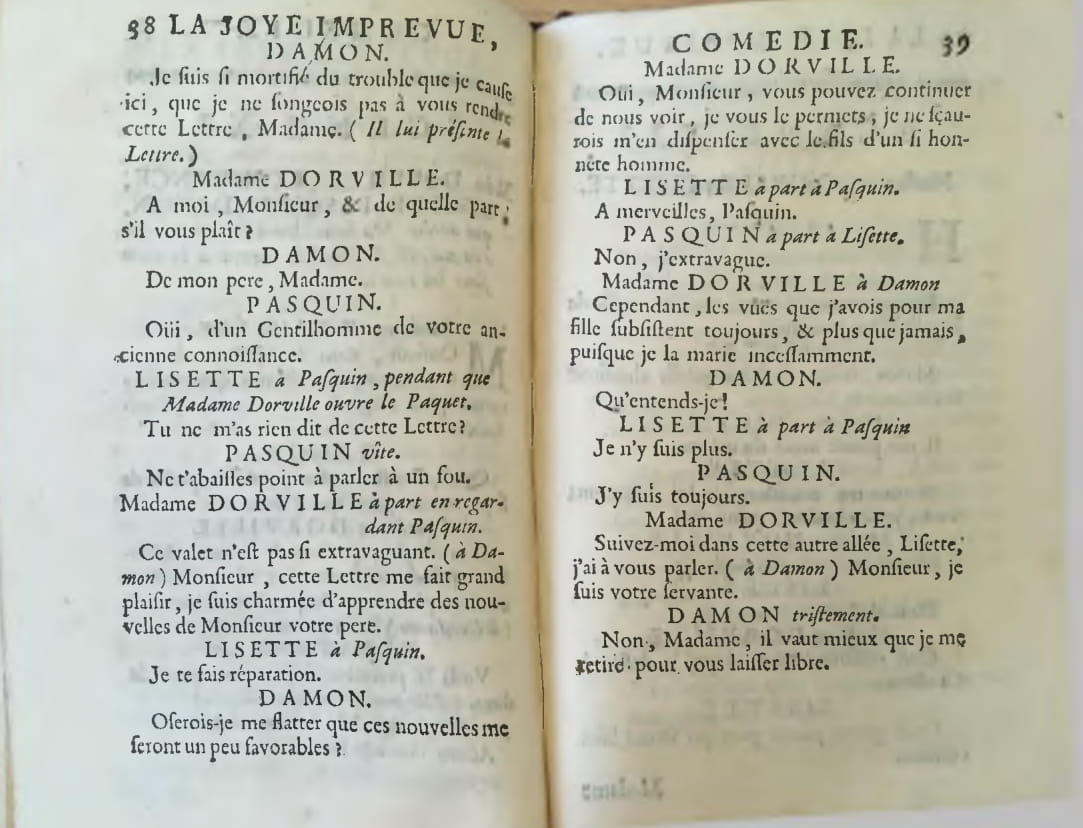 38 LA JOYE IMPREVUE,
DAMON.
Je ſuis ſi mortifié du trouble que je cauſe
ici, que je ne ſongeois pas à vous rendre
cette Lettre, Madame. ( Il lui préſente la
Lettre. )
Madame DORVILLE.
A moi, Monſieur, & de quelle part,
s'il vous plaît ?
DAMON.
De mon pere, Madame.
PASQUIN.
Oüi, d'un Gentilhomme de votre an-
cienne connoiſſance.
LISETTE à Paſquin, pendant que
Madame Dorville ouvre le Paquet.
Tu ne m'as rien dit de cette Lettre ?
PASQUIN vîte.
Ne t'abaiſſes point à parler à un fou.
Madame DORVILLE à part en regar-
dant Paſquin.
Ce valet n'eſt pas ſi extravaguant. ( à Da-
mon ) Monſieur, cette Lettre me fait grand
plaiſir, je ſuis charmée d'apprendre des nou-
velles de Monſieur votre pere.
LISETTE à Paſquin.
Je te fais réparation.
DAMON.
Oſerois-je me flatter que ces nouvelles me
ſeront un peu favorables ?
COMEDIE. 39
Madame DORVILLE.
Oüi, Monſieur, vous pouvez continuer
de nous voir, je vous le permets, je ne ſçau-
rois m'en diſpenſer avec le fils d'un ſi hon-
nête homme.
LISETTE à part à Paſquin.
A merveilles, Paſquin.
PASQUIN à part à Liſette.
Non, j'extravague.
Madame DORVILLE à Damon
Cependant, les vûës que j'avois pour ma
fille ſubſiſtent toujours, & plus que jamais,
puiſque je la marie inceſſamment.
DAMON.
Qu'entends-je !
LISETTE à part à Paſquin
Je n'y ſuis plus.
PASQUIN.
J'y ſuis toujours.
Madame DORVILLE.
Suivez-moi dans cette autre allée, Liſette,
j'ai à vous parler. ( à Damon ) Monſieur, je
ſuis votre ſervante.
DAMON triſtement.
Non, Madame, il vaut mieux que je me
retire pour vous laiſſer libre.